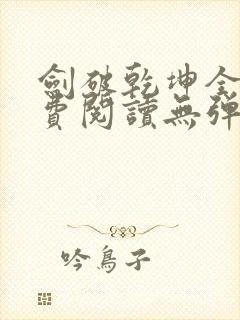 劍破乾坤全
費閱讀無彈
吟鳥子